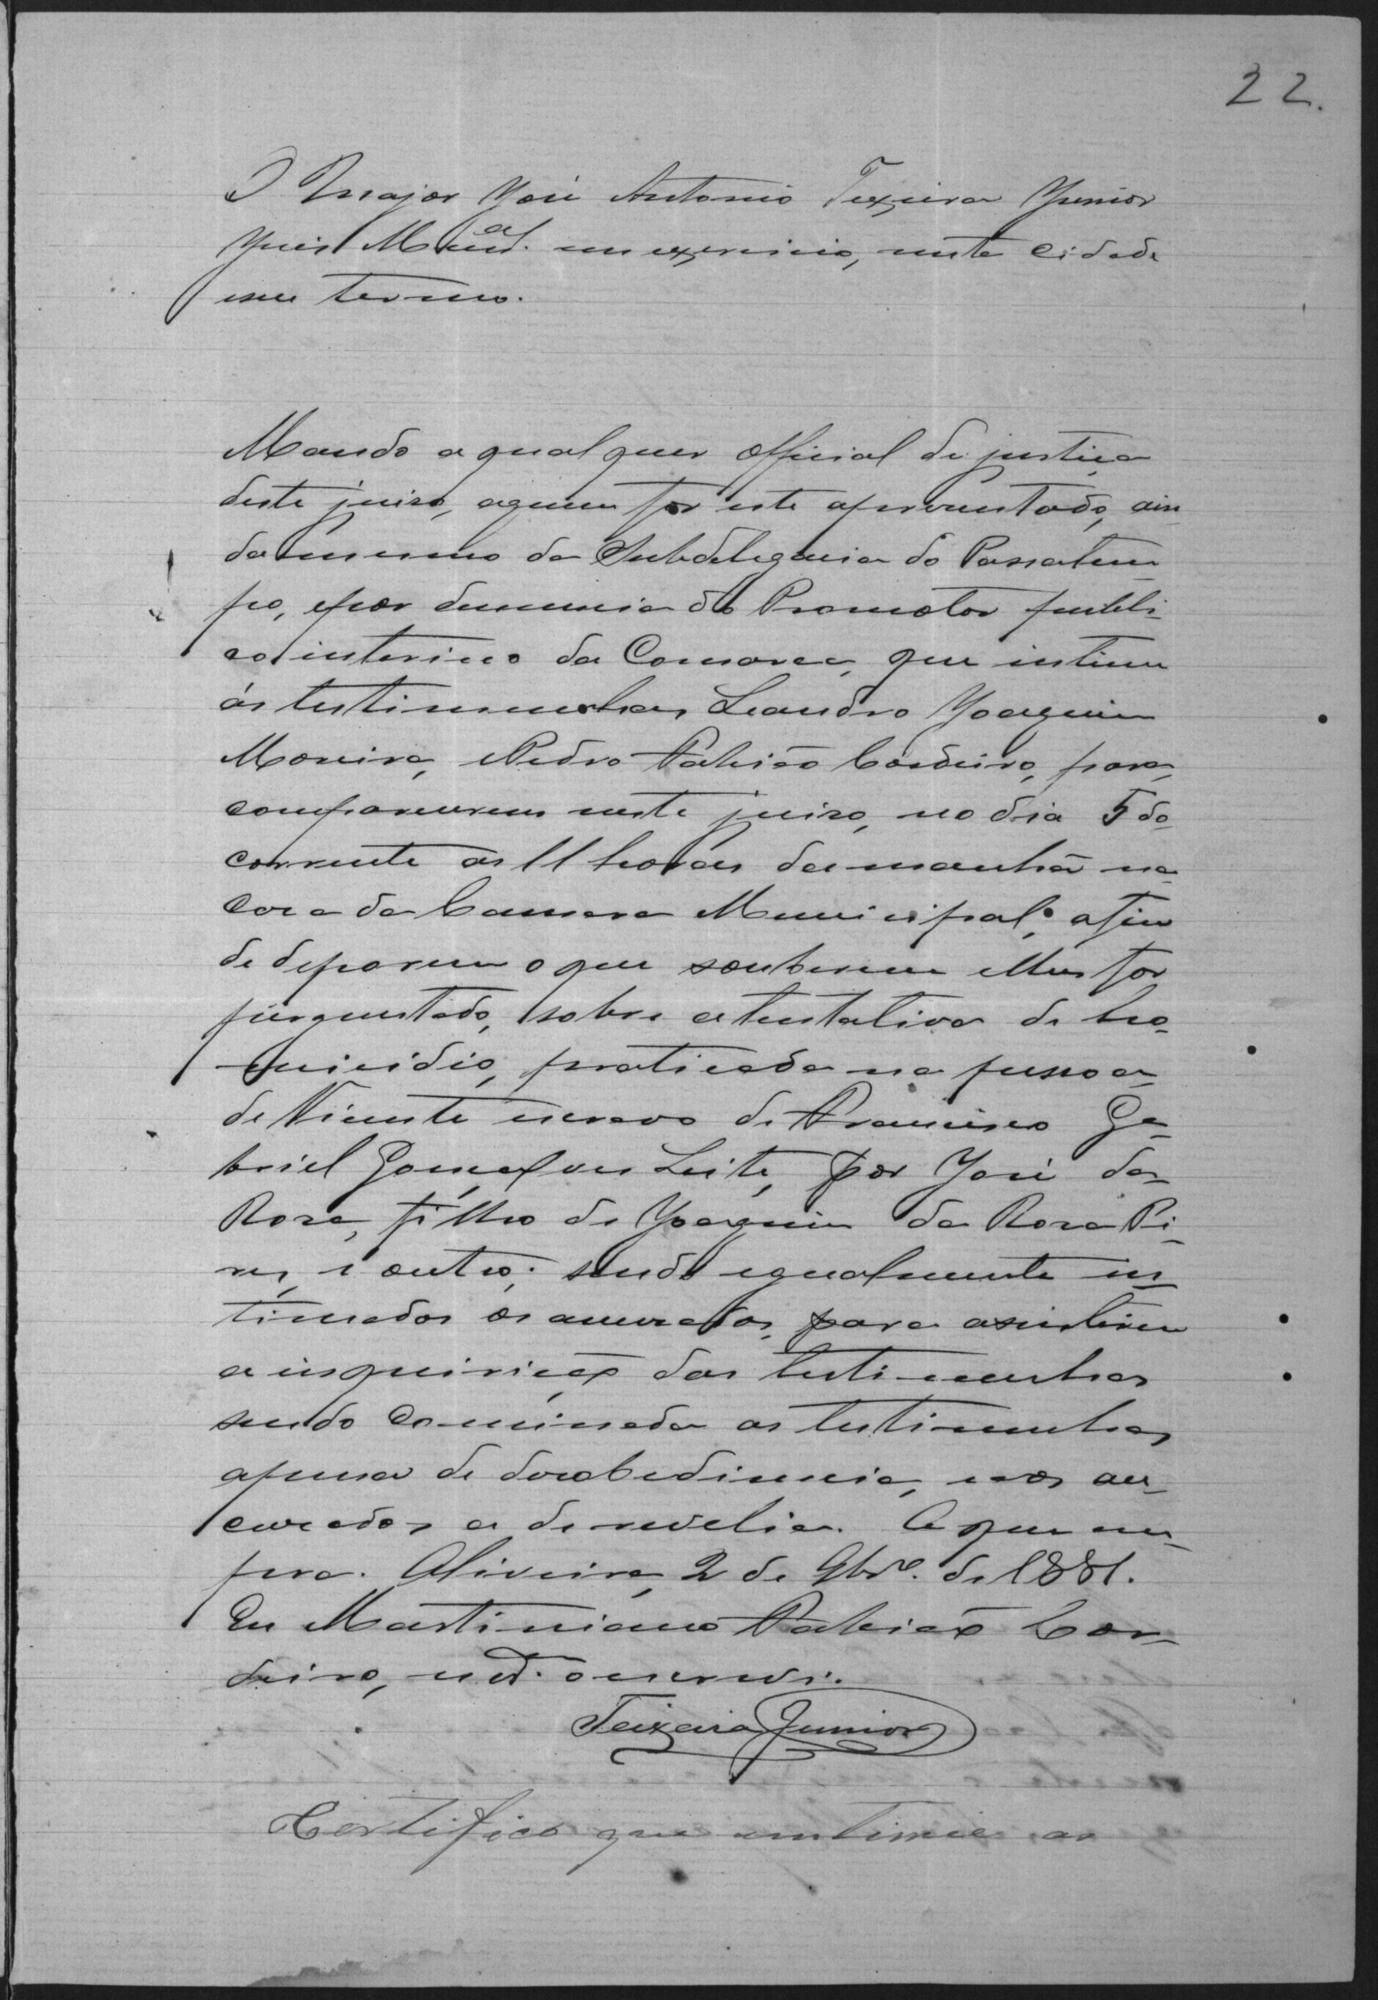 22.
O Major José Antonio Teixeira Junior
Juis Mun.al em exercicio, neste cidade
e seu termo.
Mando a qual quer Official de justiça
deste juizo, a quem for este aprezentado, ain
da mesmo da Subdelegacia do Passatem
po, e por denuncia do Promotor publi-
co interino da Comarca, que intime
ás testimunhas Leandro Joaquim
Moreira, e Pedro Fabião Cordeiro, para
comparecerem neste juizo, no dia 5 do
corrente as 11 horas da manhã na
Caza da Camara Municipal, afim
de deporem o que souberem e lhes for
perguntado, sobre a tentativa de ho-
micidio, praticada na pessoa
de Vicente escravo de Francisco Ga-
briel Gonçalves Leite, por José da
Roza, filho de Joaquim da Roza Pi-
res, e outro; sendo igualmente in
timados os accuzados, para assistirem
a inquirição das testimunhas
sendo cominada as testimunhas
a pena de desobediencia, e aos ac-
cuzados a de revelia. O que cum-
pra. Oliveira, 2 de 9br.o de 1881.
Eu Martiniano Fabião Cor-
deiro, escr. o escrevi.
Teixeira Junior
Certifico que emtimei as